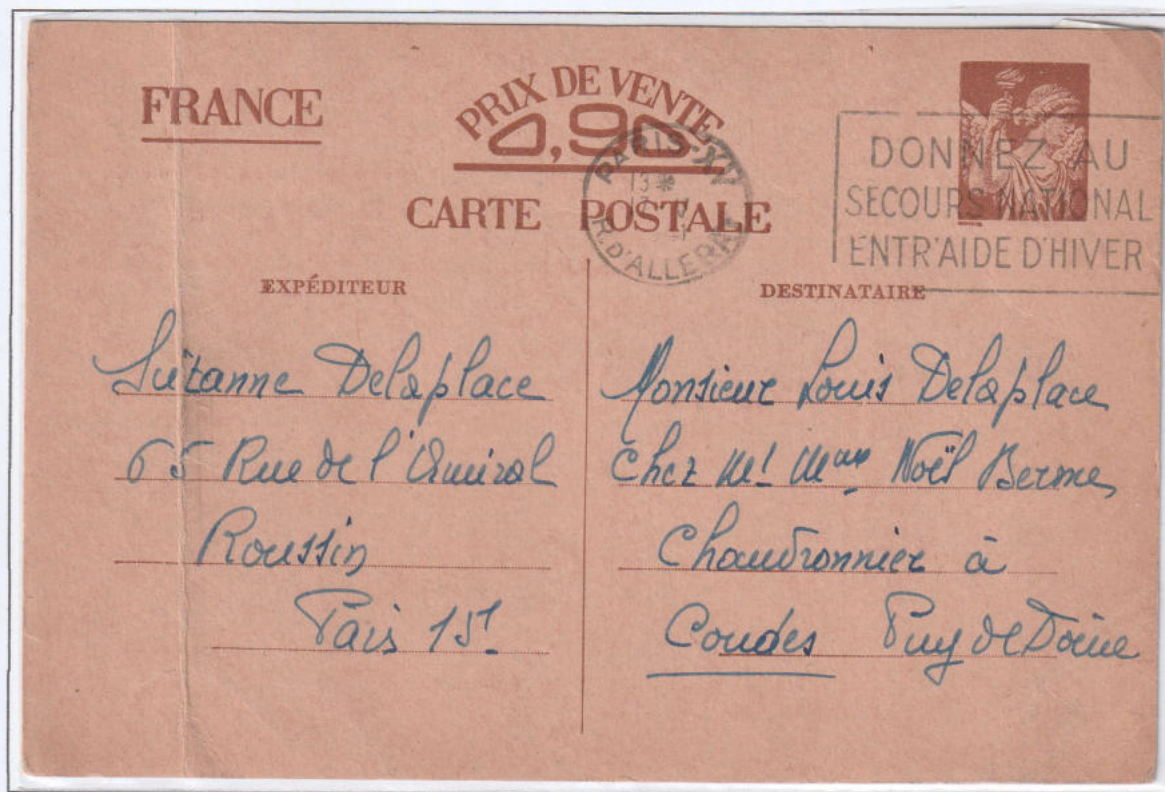 FRANCE
PRIX DE VENTE
0,90
CARTE POSTALE
PARIS-XV
13*
R. D'ALLERAY
DONNEZ AU
SECOURS NATIONAL
ENTR'AIDE D'HIVER
EXPÉDITEUR
Suzanne Delaplace
65 Rue de l'Amiral
Roussin
Paris 15e
DESTINATAIRE
Monsieur Louis Delaplace
Chez Mr Mme Noël Berme
Chaudronnier à
Coudes Puy de Dôme